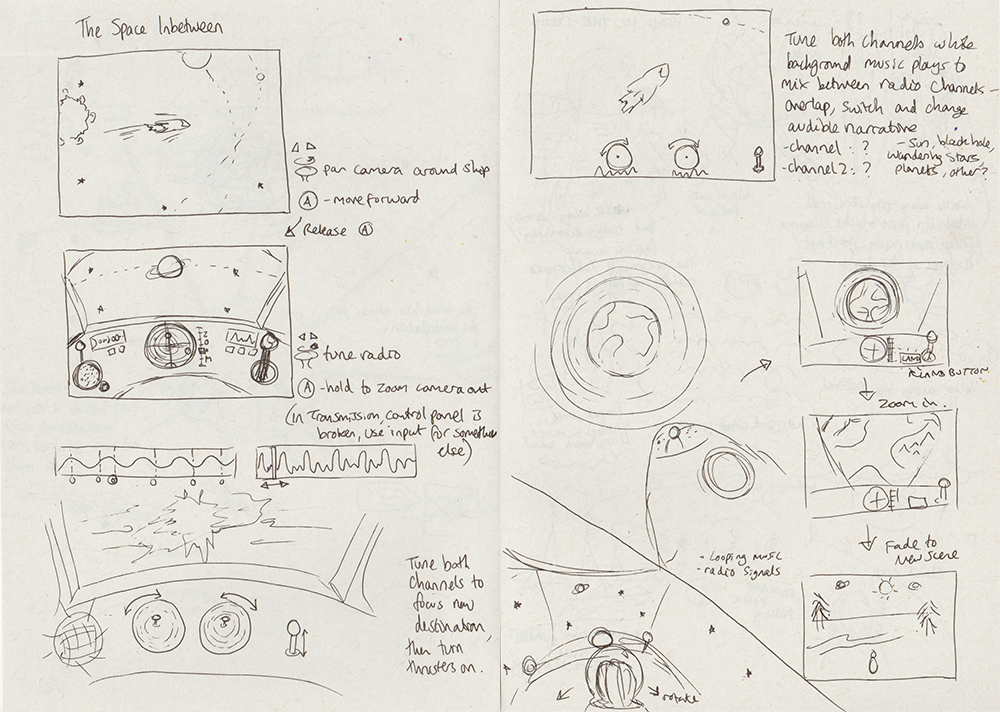 The Space Inbetween
pan camera around ship
Ⓐ - move forward
Release Ⓐ
ZOOM
tune radio
Ⓐ - hold to zoom camera out
(in Transmission, control panel is
broken, use input for something
else)
Tune both
channels to
focus new
destination,
then turn
thrusters on.
Tune both channels while
background music plays to
mix between radio channels -
overlap, switch and change
audible narrative
- channel 1: ? - Sun, blackhole,
wandering stars
- channel 2: ? planets, other?
LAND
LAND BUTTON
Zoom in.
Fade to
new scene
- Looping music
- radio signals
rotate